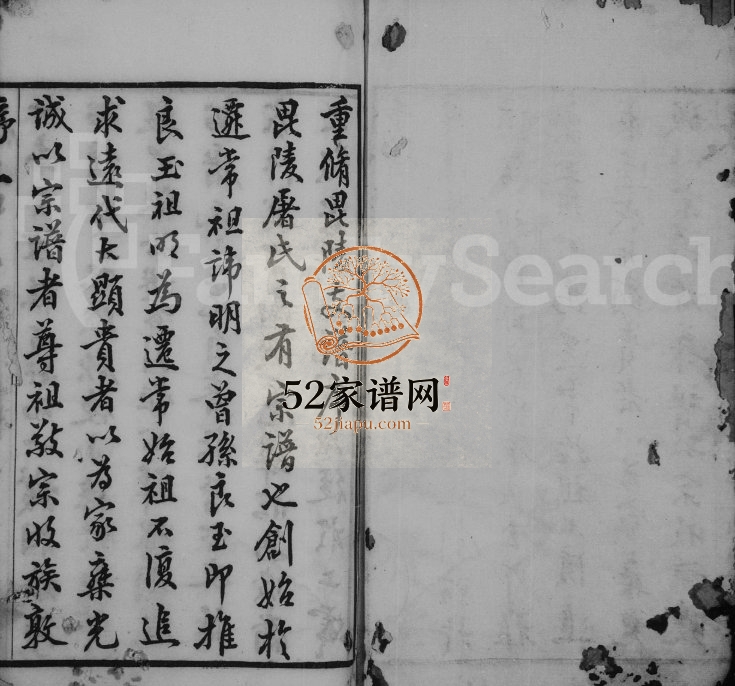 重脩毘陵
毘陵屠氏之有宗譜也創始於
遷常祖諱明之曾孫良玉即推
良玉祖明為遷常始祖不復追
求遠代大顯貴者以為家乗光
誠以宗譜者尊祖敬宗收族敦
序
FamilySearch
52家谱网
52jiapu.com